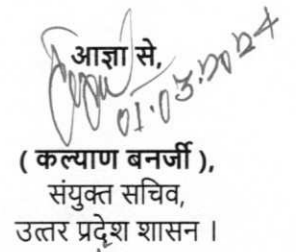 आज्ञा से,
01.03.2024
( कल्याण बनर्जी ),
संयुक्त सचिव,
उत्तर प्रदेश शासन ।